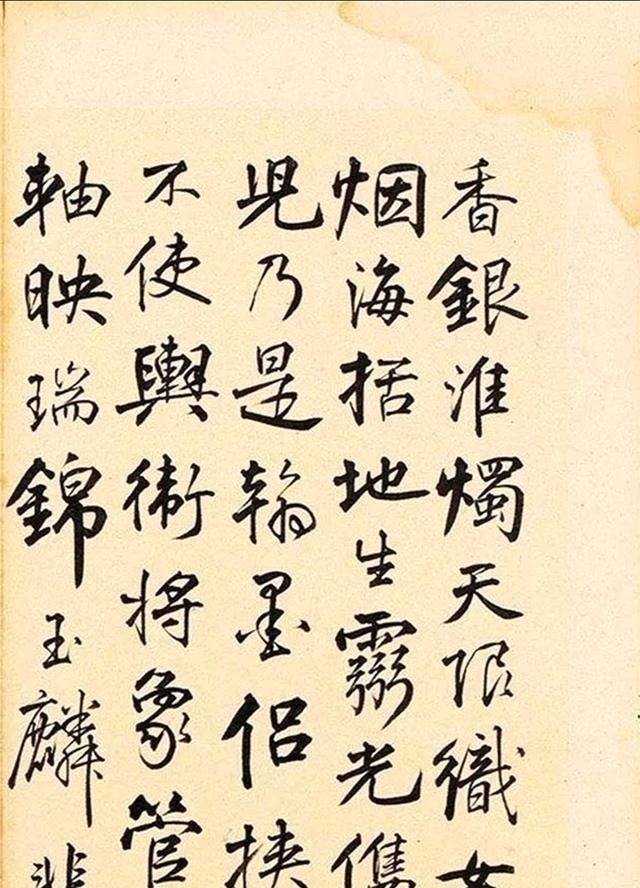 香銀淮燭天限織女
烟海括地生光
兒乃是翰墨侶挾
不使輿衛將象管
軸映瑞錦玉麟